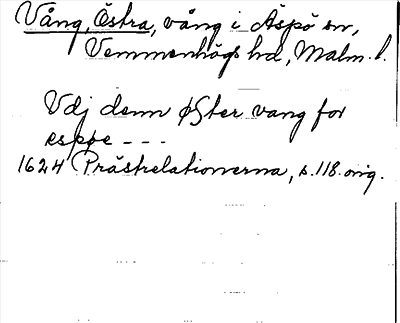 Vång, Östra, vång i Äspö sn,
Vemmenhögs hd, Malm. l.
Vdj denn øster vang for
espøe ---
1624 Prästrelationerna, s. 118. orig.